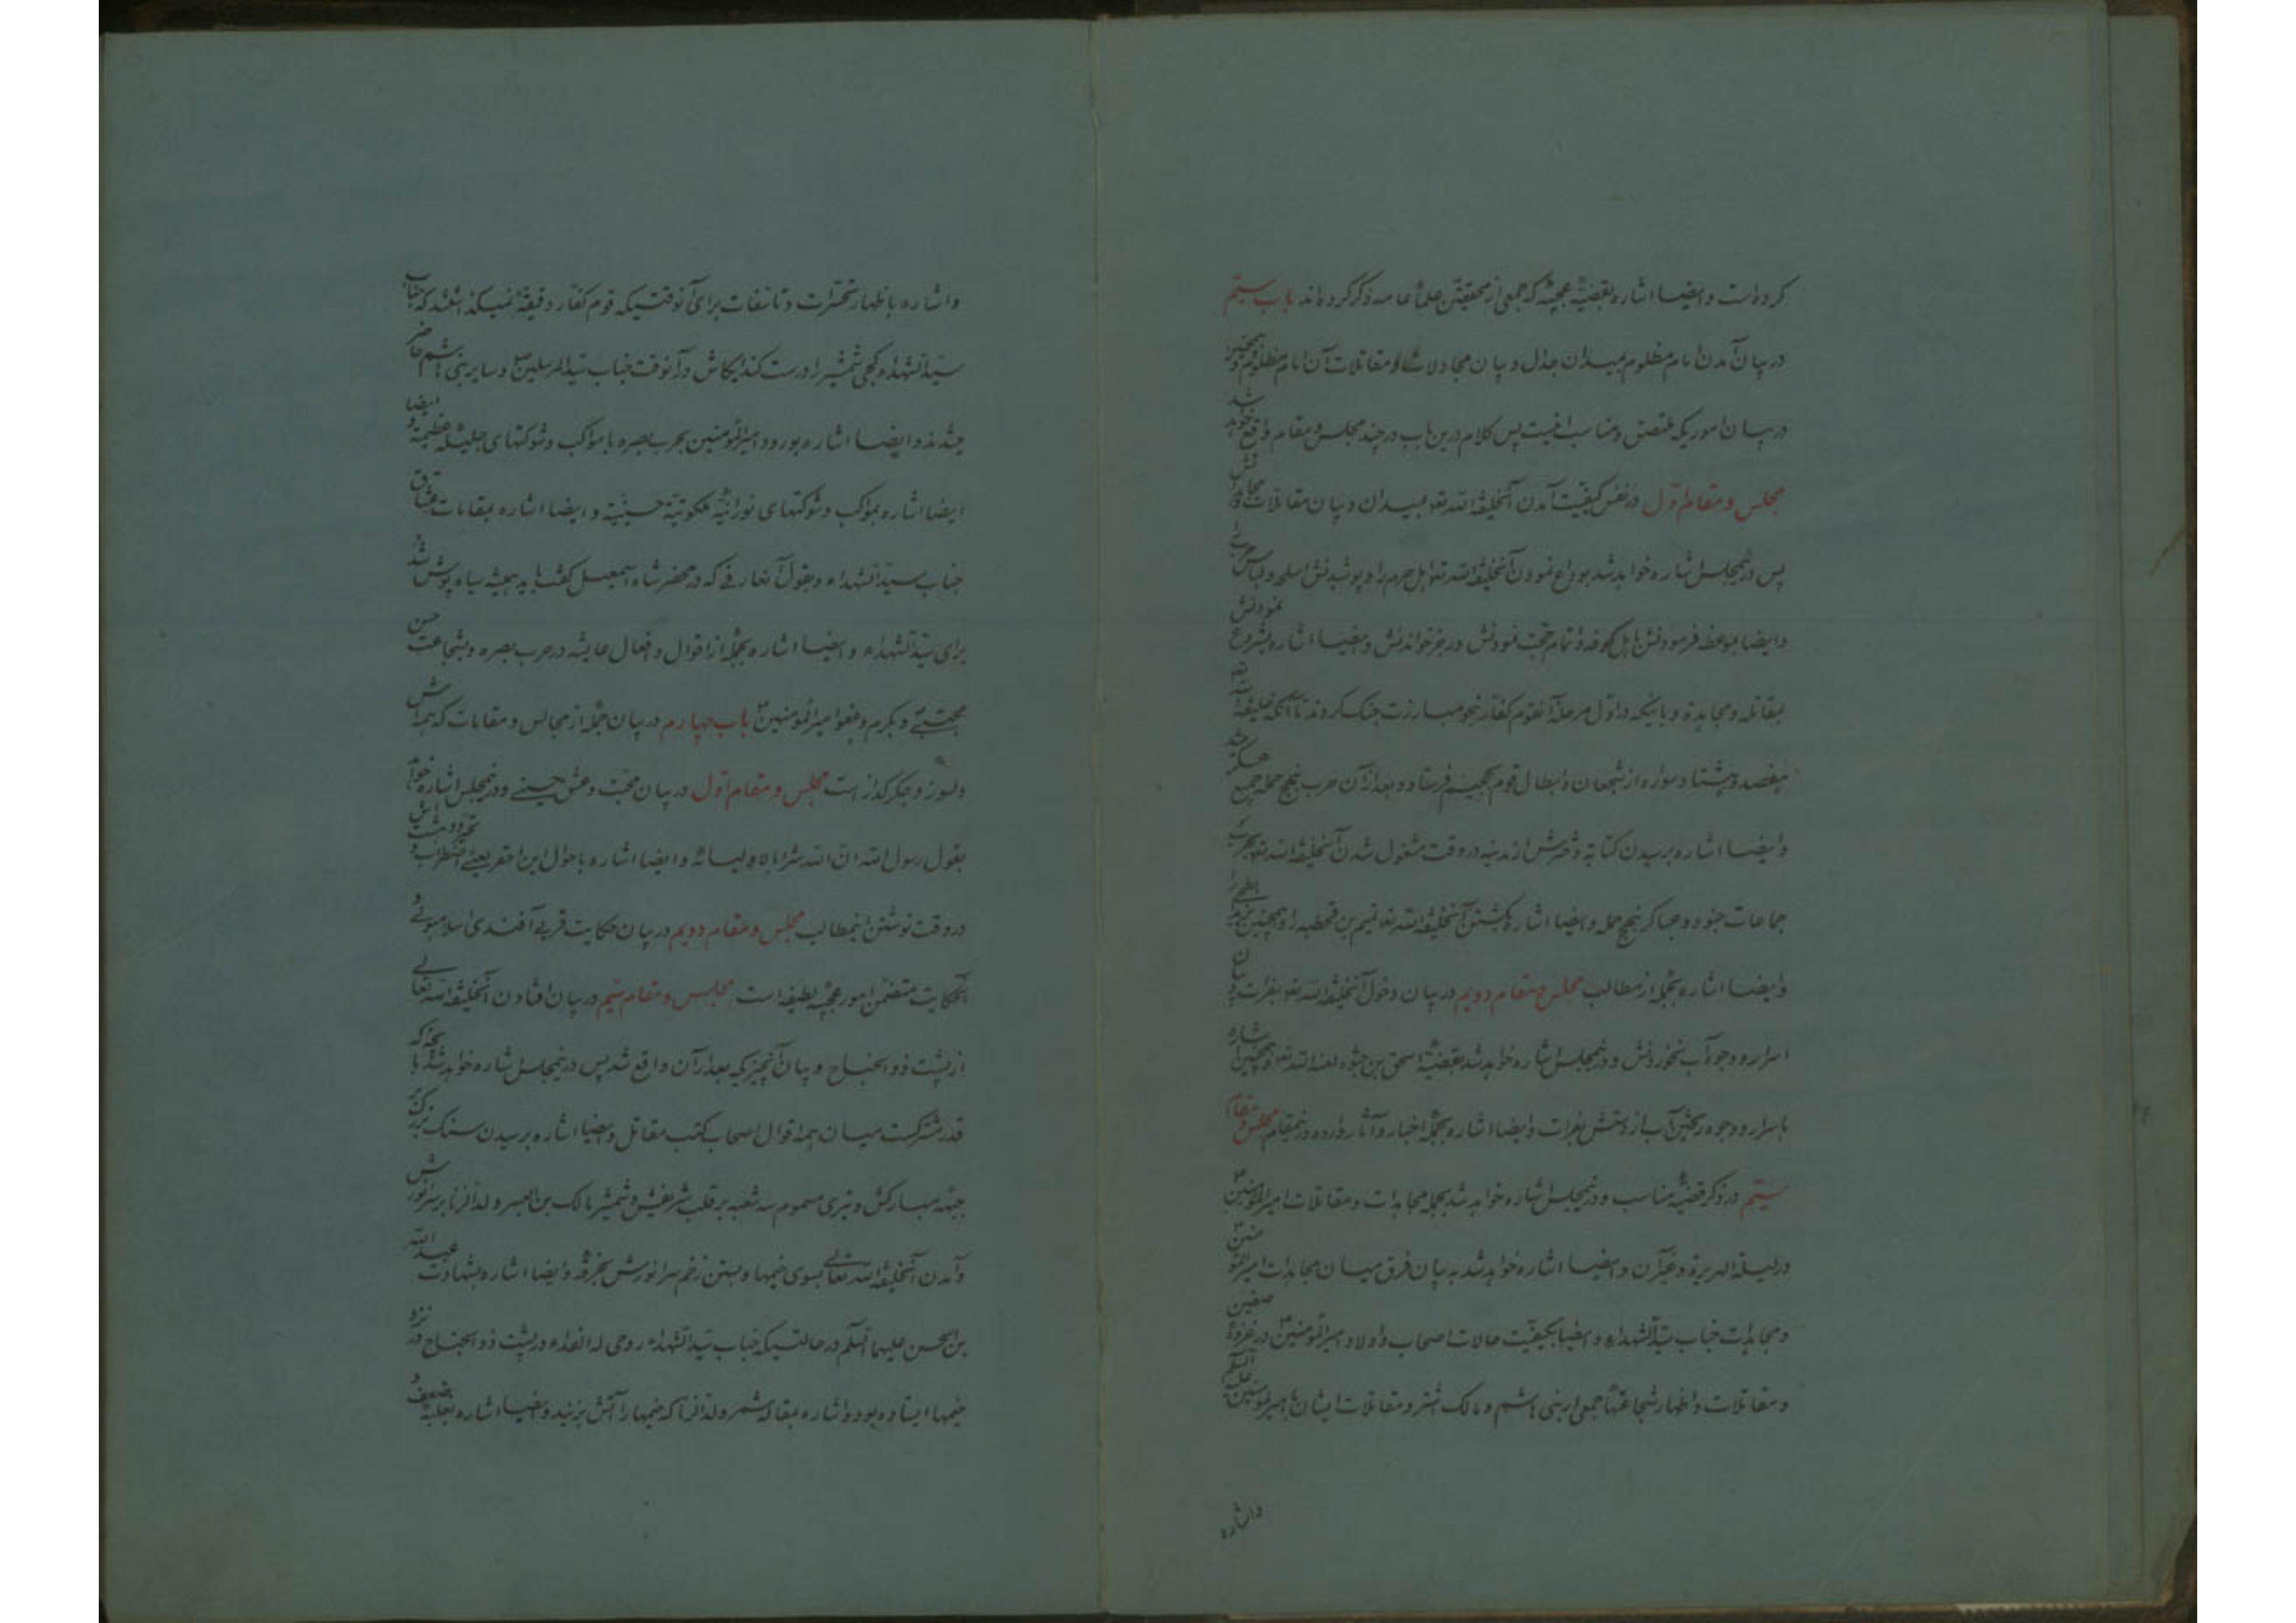 کرده است و ایضا اشاره بقضیهٔ عجیبه که جمعی از محققین علماء عامه ذکر کرده‌اند باب سیم
در بیان آمدن امام مظلوم بمیدان جدال و بیان مجادلات و مقاتلات آن امام مظلوم و همچنین
در بیان اموریکه ملتصق و مناسب اینست پس کلام درین باب در چند مجلس و مقام واقع خواهد شد
مجلس و مقام اول در نفس کیفیت آمدن آنخلیفة الله تعو بمیدان و بیان مقاتلات
پس درینمجلس اشاره خواهد شد بوداع نمودن آنخلیفة الله تعو اهل حرم را و پوشیدنش اسلحه و لباس
و ایضا بموعظه فرمودنش باهل کوفه و اتمام حجت نمودنش و رجز خواندنش و ایضا اشاره بشروع نمودنش
بمقاتله و مجاهده و باینکه در اول مرحله آنقوم کفار بنحو مبارزت جنک کردند تا آنکه خلیفة الله
هفتصد و هشتاد سواره از شجعان و ابطال قوم بجحیم فرستاد و بعد از آن حرب بنهج حمله جمیع
و ایضا اشاره برسیدن کتابه دخترش از مدینه در وقت مشغول شدن آنخلیفة الله تعو بحرب
جماعات جنود و عساکر بنهج حمله و ایضا اشاره بکشتن آنخلیفة الله تعو تمیم بن قحطبه را و همچنین یزید ابطحی را
و ایضا اشاره بجملهٔ از مطالب مجلس و مقام دویم در بیان دخول آنخلیفة الله تعو بفرات و بیان
اسرار و وجوه آب نخوردنش و درینمجلس اشاره خواهد شد بقضیهٔ اسحق بن حیوه لعنه الله تعو و همچنین اشاره
باسرار و وجوه ریختن آب از دستش بفرات و ایضا اشاره بجملهٔ اخبار و آثار وارده درینمقام مجلس و مقام
سیم در ذکر قضیهٔ مناسب و درینمجلس اشاره خواهد شد بجمله مجاهدات و مقاتلات امیرالمؤمنین
در لیلة الهریره و غیر آن و ایضا اشاره خواهد شد به بیان فرق میان مجاهدات امیرالمؤمنین
و مجاهدات جناب سیدالشهداء و ایضا بکیفیت حالات اصحاب و اولاد امیرالمؤمنین در غزوهٔ صفین
و مقاتلات و اظهار شجاعتهای جمعی از بنی هاشم و مالک اشتر و مقاتلات ایشان با امیرالمؤمنین علیه السلم
و اشاره
و اشاره باظهار تحسرات و تاسفات برای آنوقتیکه قوم کفار دقیقهٔ نمیکذاشتند که جناب
سیدالشهداء کجی شمشیر را درست کند ایکاش در آنوقت جناب سیدالمرسلین و سایر بنی هاشم حاضر
میشدند و ایضا اشاره بورود امیرالمؤمنین بحرب بصره با موکب و شوکتهای جلیله عظیمه و
ایضا اشاره بموکب و شوکتهای نورانیهٔ ملکوتیهٔ حسینیه و ایضا اشاره بمقامات عشاق
جناب سیدالشهداء و بقول آنعارفی که در محضر شاه اسمعیل کفت باید همیشه سیاه پوش شد
برای سیدالشهداء و ایضا اشاره بجملهٔ از اقوال و افعال عایشه در حرب بصره و بشجاعت حسن
مجتبی و بکرم و عفو امیرالمؤمنین باب چهارم در بیان جملهٔ از مجالس و مقامات که همه‌اش
دلسوز و جکرکداز است مجلس و مقام اول در بیان محبت و عشق حسینی و درینمجلس اشاره خواهد
بقول رسول الله ان الله شرابا لاولیائه و ایضا اشاره باحوال این احقر یعنی اضطراب و
در وقت نوشتن اینمطالب مجلس و مقام دویم در بیان حکایت قربی آفندی اسلامبولی و
آنحکایت متضمن امور عجیبه لطیفه است مجلس و مقام سیم در بیان افتادن آنخلیفة الله تعالی
از پشت ذوالجناح و بیان آنچیزیکه بعد از آن واقع شد پس درینمجلس اشاره خواهد شد بآنچه که
قدر مشترکست میان همه اقوال اصحاب کتب مقاتل و ایضا اشاره برسیدن سنک بزرک بر
جبههٔ مبارکش و تیری مسموم سه شعبه بر قلب شریفش و شمشیر مالک بن الیسر ولدالزنا بر سر انورش
و آمدن آنخلیفة الله تعالی بسوی خیمها و بستن زخم سر انورش بخرقه و ایضا اشاره بشهادت عبدالله
بن الحسن علیهما السلم در حالتیکه جناب سیدالشهداء روحی له الفداء در پشت ذوالجناح در نزد
خیمها ایستاده بود و اشاره بمقاله شمر ولدالزنا که خیمها را آتش بزنید و ایضا اشاره بغلبهٔ ضعف و